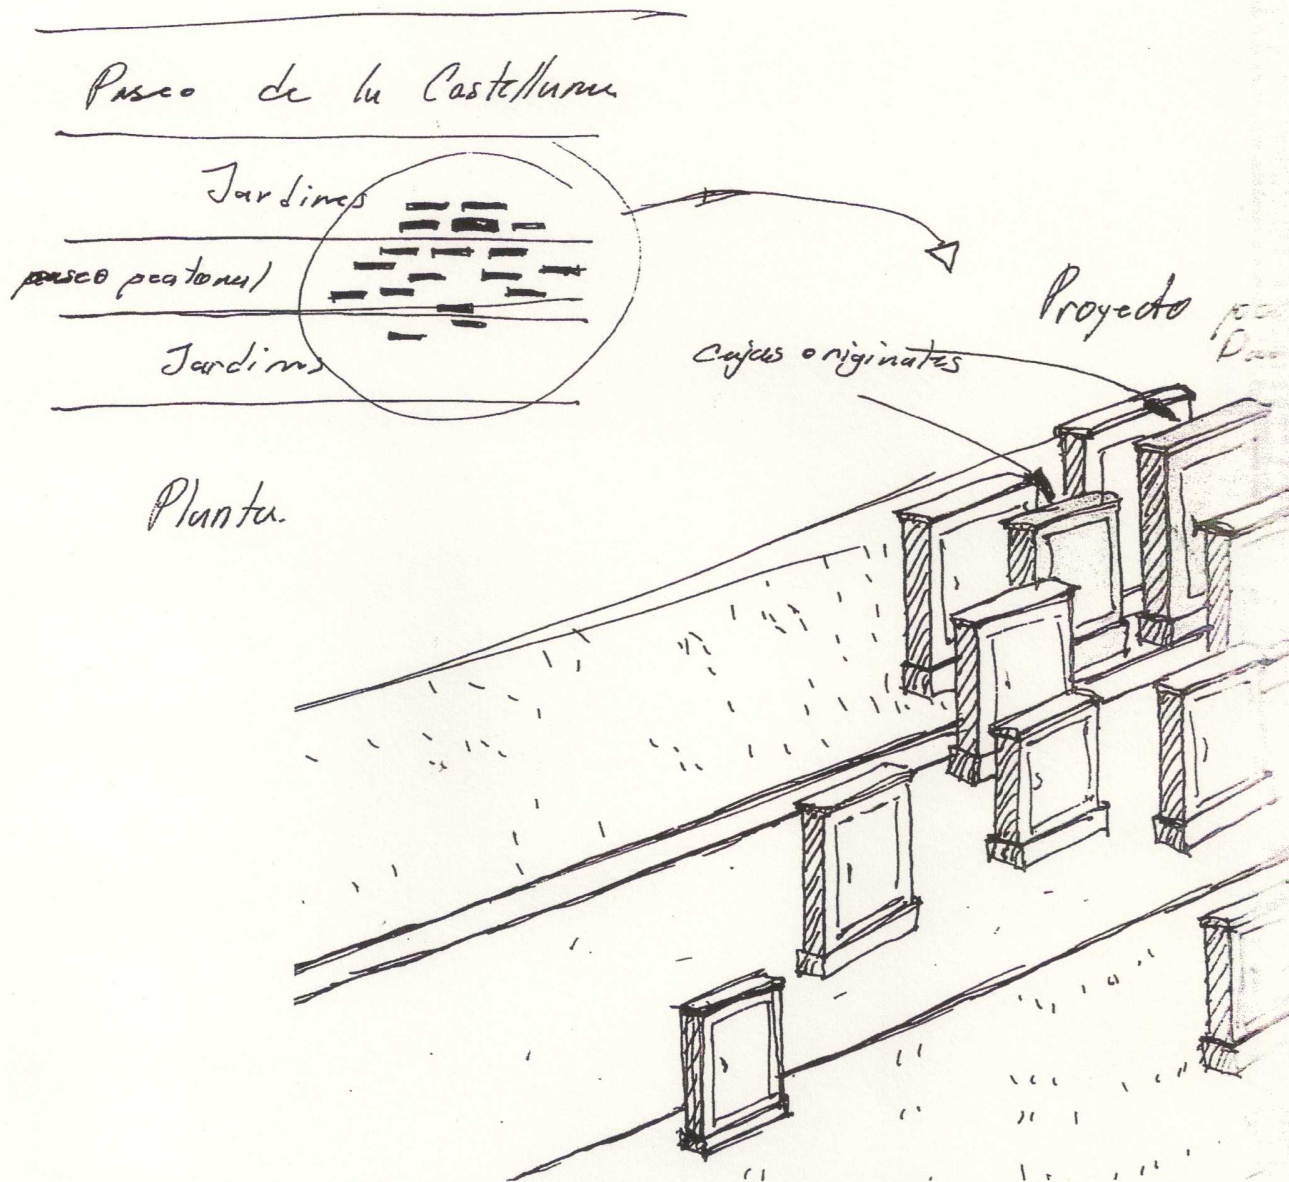 Paseo de la Castellana
Jardines
paseo peatonal
Jardines
Planta.
Proyecto
cajas originales